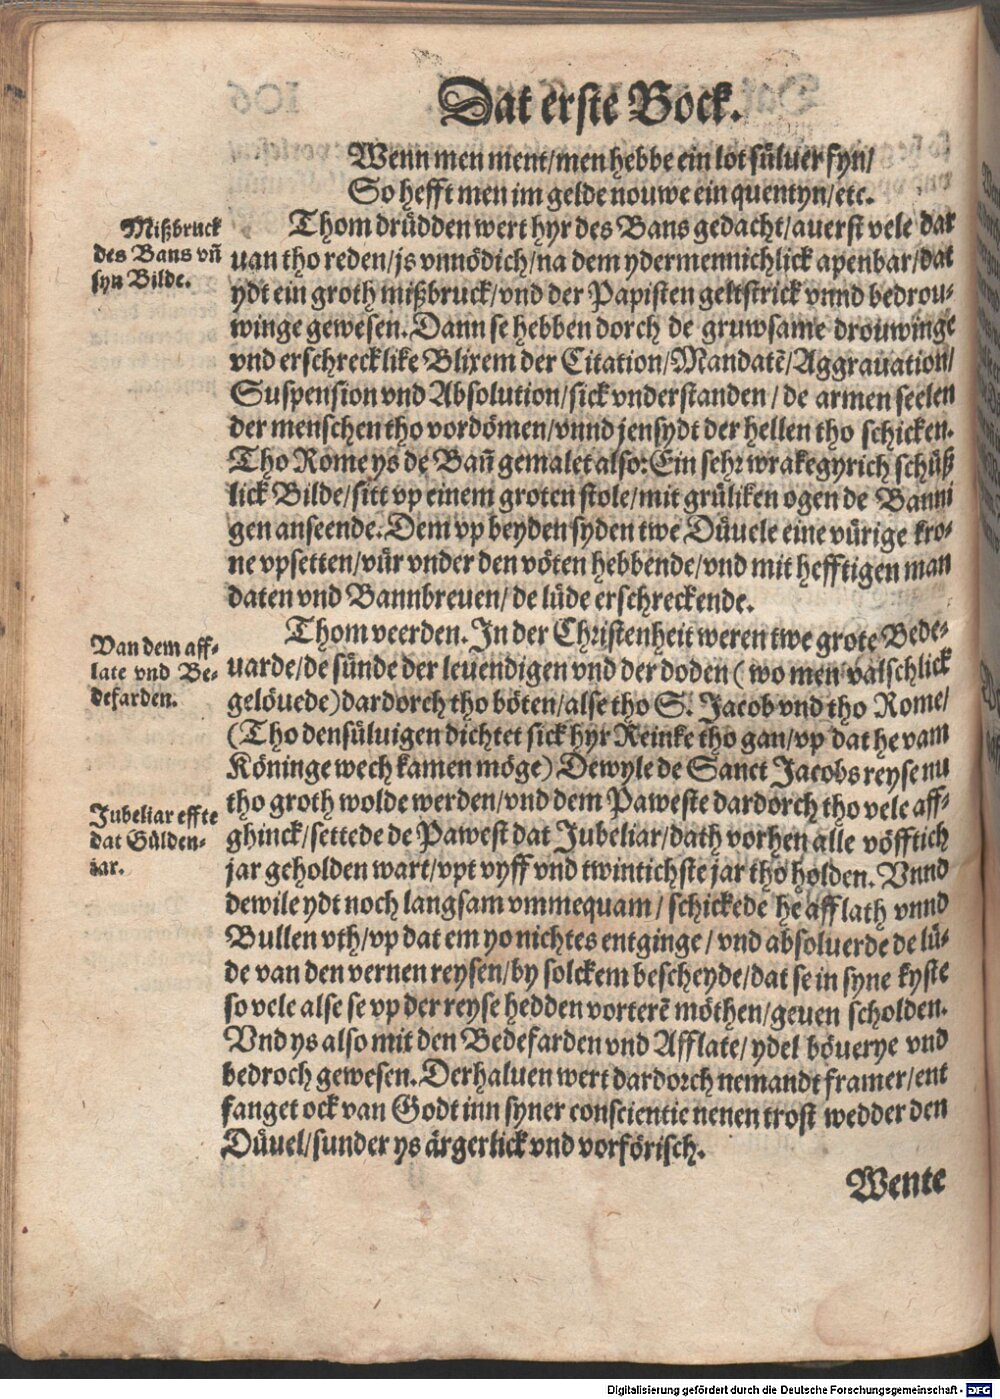 Dat erste Bock.
Wenn men ment/men hebbe ein lot süluer fyn/
So hefft men im gelde nouwe ein quentyn/etc.
Mißbruck
des Bans vñ
syn Bilde.
Thom drüdden wert hyr des Bans gedacht/auerst vele dar
uan tho reden/js vnnödich/na dem ydermennichlick apenbar/dat
ydt ein groth mißbruck/vnd der Papisten geltstrick vnnd bedrou-
winge gewesen. Dann se hebben dorch de gruwsame drouwinge
vnd erschrecklike Blixem der Citation/Mandatē/Aggrauation/
Suspension vnd Absolution/sick vnderstanden/de armen seelen
der menschen tho vordömen/vnnd jensydt der hellen tho schicken.
Tho Rome ys de Bañ gemalet also: Ein sehr wrakegyrich schüß
lick Bilde/sitt vp einem groten stole/mit grüliken ogen de Banni
gen anseende. Dem vp beyden syden twe Düuele eine vürige kro-
ne vpsetten/vür vnder den vöten hebbende/vnd mit hefftigen man
daten vnd Bannbreuen/de lüde erschreckende.
Van dem aff-
late vnd Be-
defarden.
Thom veerden. In der Christenheit weren twe grote Bede-
uarde/de sünde der leuendigen vnd der doden (wo men valschlick
gelöuede) dardorch tho böten/alse tho S. Jacob vnd tho Rome/
(Tho densüluigen dichtet sick hyr Reinke tho gan/vp dat he vam
Köninge wech kamen möge) Dewyle de Sanct Jacobs reyse nu
tho groth wolde werden/vnd dem Paweste dardorch tho vele aff-
Jubeliar effte
dat Gülden-
iar.
ghinck/settede de Pawest dat Jubeliar/dath vorhen alle vöfftich
jar geholden wart/vpt vyff vnd twintichste jar tho holden. Vnnd
dewile ydt noch langsam vmmequam/schickede he afflath vnnd
Bullen vth/vp dat em yo nichtes entginge/vnd absoluerde de lü-
de van den vernen reysen/by solckem bescheyde/dat se in syne kyste
so vele alse se vp der reyse hedden vorterē möthen/geuen scholden.
Vnd ys also mit den Bedefarden vnd Afflate/ydel böuerye vnd
bedroch gewesen. Derhaluen wert dardorch nemandt framer/ent
fanget ock van Godt inn syner conscientie nenen trost wedder den
Düuel/sunder ys ärgerlick vnd vorförisch.
Wente
Digitalisierung gefördert durch die Deutsche Forschungsgemeinschaft - DFG